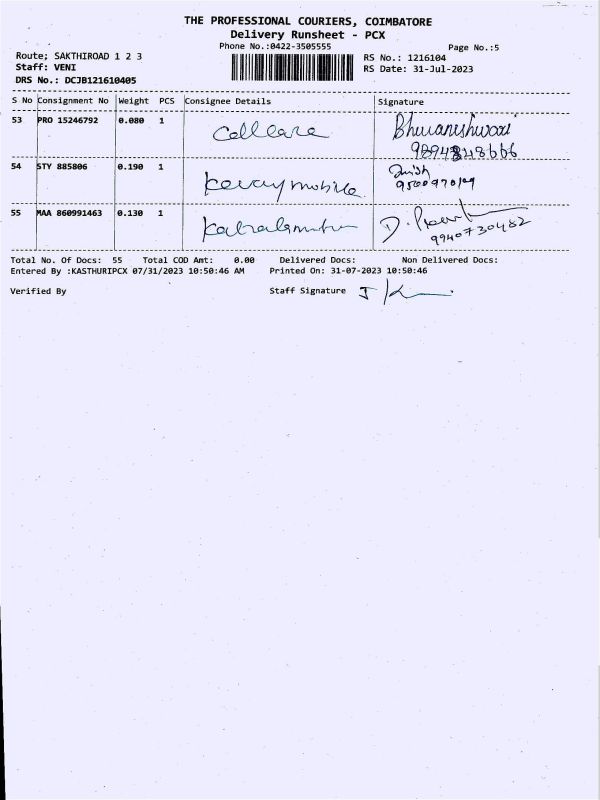 THE PROFESSIONAL COURIERS, COIMBATORE
Delivery Runsheet - PCX
Phone No.:0422-3505555
Page No.:5
Route; SAKTHIROAD 1 2 3
RS No.: 1216104
Staff: VENI
RS Date: 31-Jul-2023
DRS No.: DCJB121610405
S No Consignment No Weight PCS Consignee Details Signature
53 PRO 15246792 0.080 1 Cellcare Bhuvaneshwari
54 STY 885806 0.190 1 mobile
55 MAA 860991463 0.130 1 D.
9940730482
Total No. Of Docs: 55 Total COD Amt: 0.00 Delivered Docs: Non Delivered Docs:
Entered By :KASTHURIPCX 07/31/2023 10:50:46 AM Printed On: 31-07-2023 10:50:46
Verified By Staff Signature